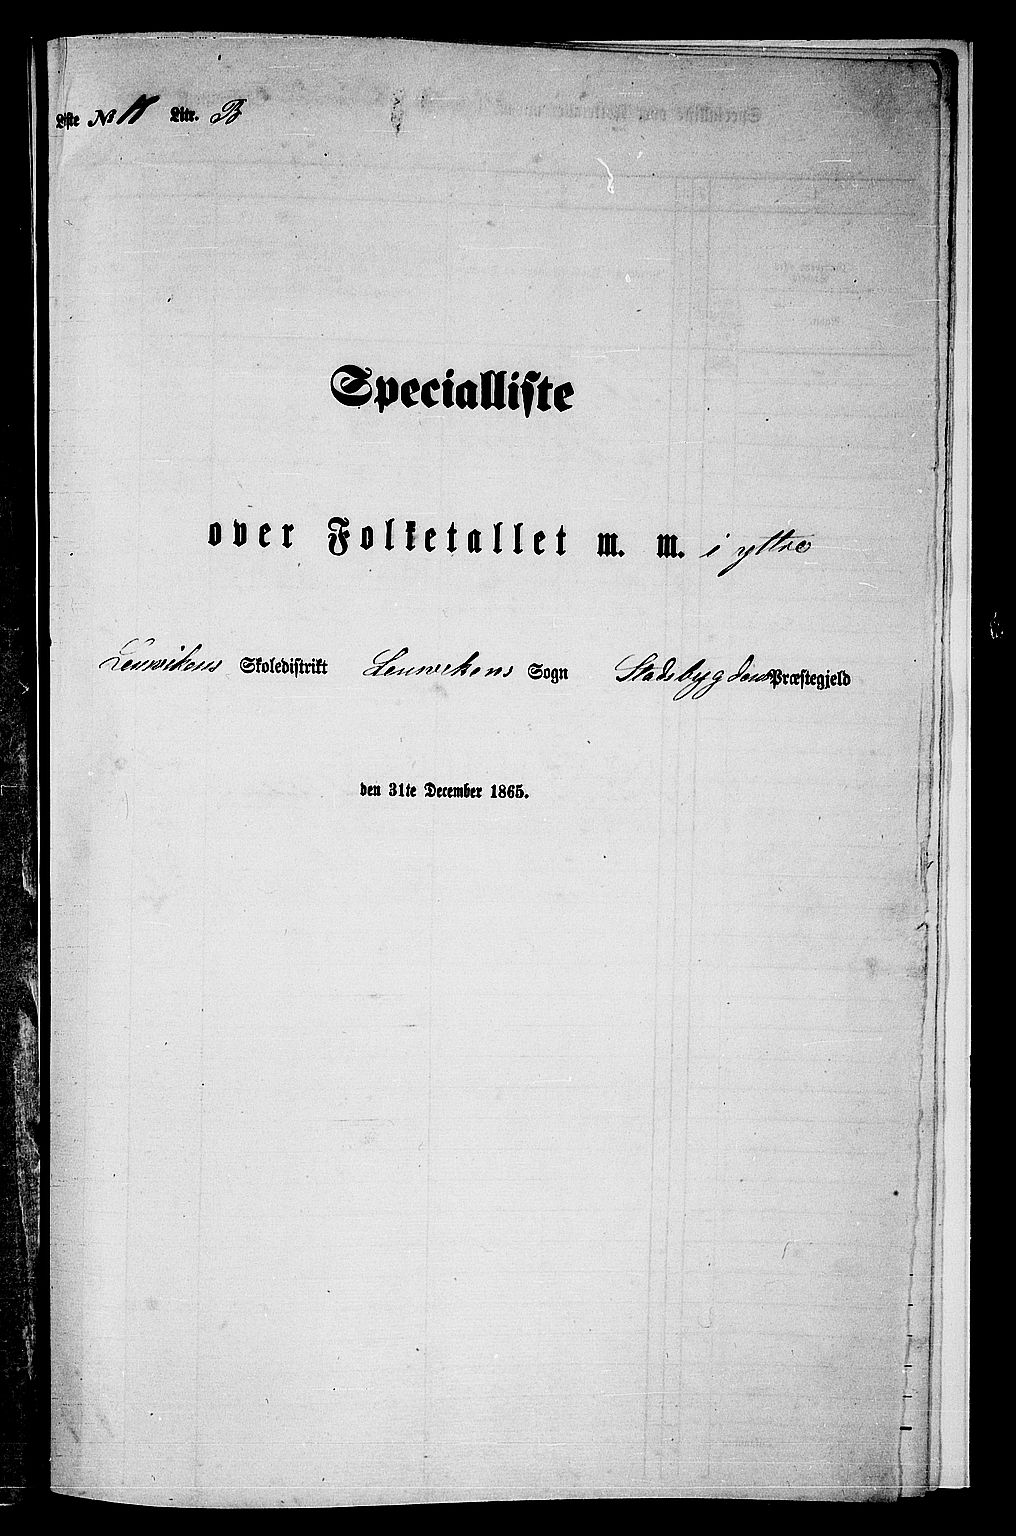 Liste No 11 Litr. B
Specialliste
over Folketallet m. m. i yttre
Lenvikens Skoledistrikt Lenvikens Sogn Stadsbygdens Præstegjeld
den 31te December 1865.